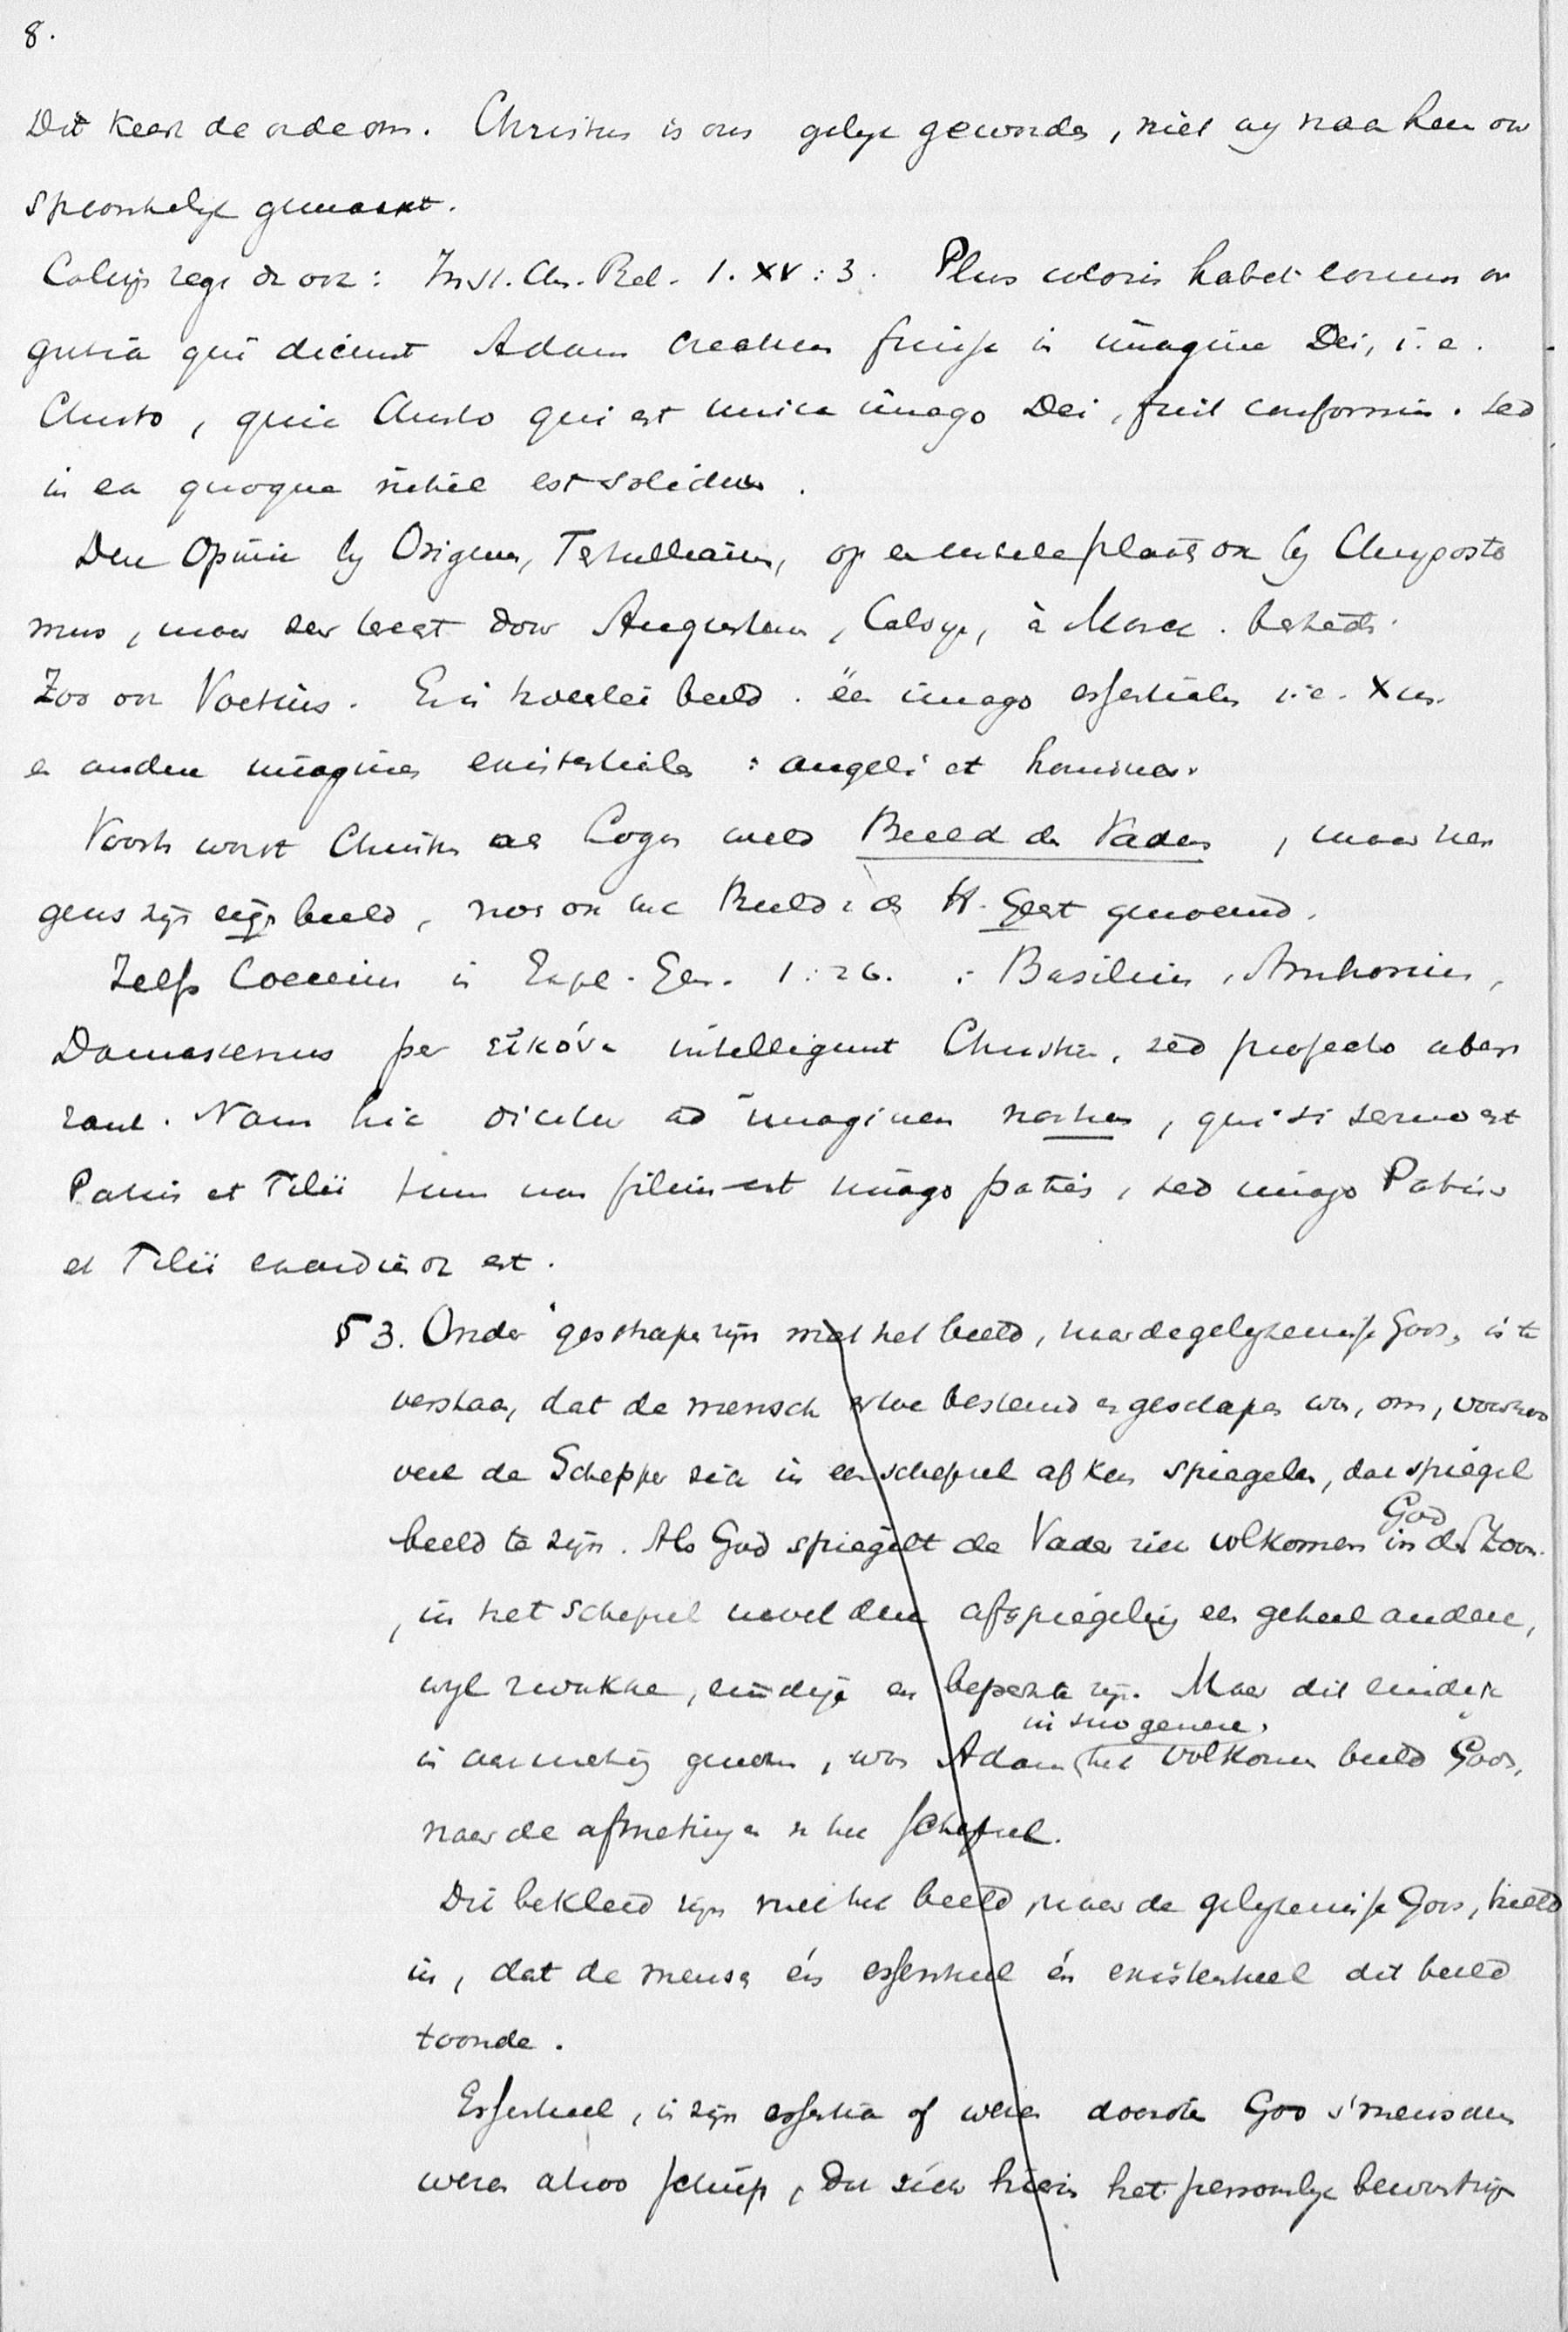 8.
Dit keert de orde om. Christus is ons gelyk geworden, niet wy naar hem oor
spronkelyk gemaakt.
Calvijn zegt dr ook: Inst. Chr. Rel. 1. XV : 3. Plus coloris habet eorum ar
gutia qui dicunt Adam creatum fuisse in imagine Dei, i. e.
Christo, quia Christo qui est unica imago Dei, fuit conformis. Sed
in ea quoque nihil est solidum.
Deze Opinie by Origenes, Tertullianus, op enkele plaats ook by Chrysosto
mus, maar zeer leert door Augustinus, Calvyn, à Marck.
Zoo ook Voetius. Er is tweeërlei beeld. één imago essentialis i. e. Xus.
en andere imagines existentiales : angeli et homines.
Voorts wordt Christus als Logos wel Beeld des Vaders, maar ner
gens zijn eigen beeld, noch ook het Beeld v. d. H. Geest genoemd.
Zelfs Cocceius in Expl. Gen. 1 : 26. : Basilius, Ambrosius,
Damascenus per εἰκόνα intelligunt Christum, sed profecto aber
rant. Nam hic dicitur ad imaginem nostram, qui si sermo est
Patris et Filii tum non filius est imago patris, sed imago Patris
et Filii
§ 3. Onder geschapen zijn met het beeld, naar de gelykenisse Gods, is te
verstaan, dat de mensch ertoe bestemd en geschapen was, om, voor zoo
veel de Schepper zich in een schepsel af kon spiegelen, dat spiegel
beeld te zijn. Als God spiegelt de Vader zich volkomen in God den Zoon.
, in het schepsel moest deze afspiegeling een geheel andere,
wyl zwakke, eindige en beperkte zijn. Maar dit eindige
in aanmerking genomen, was Adam in suo genere, het volkomen beeld Gods,
naar de afmetingen v. het schepsel.
Dit bekleed zijn met het beeld, naar de gelykenisse Gods, hield
in, dat de mensch én essentieel én existentieel dit beeld
toonde.
Essentieel, in zijn essentia of wezen doordien God 's menschen
wezen alzoo schiep, dat zich hierin het persoonlyk bewustzijn